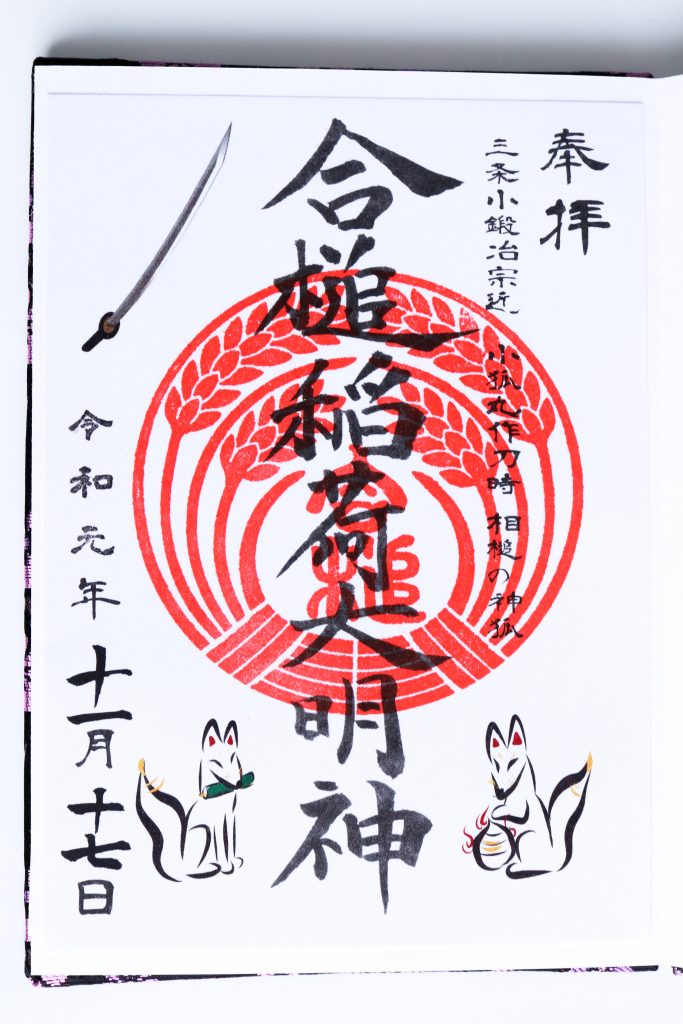 奉拝
三条小鍛冶宗近 小狐丸作刀時 相槌の神狐
合槌稲荷大明神
令和元年十一月十七日